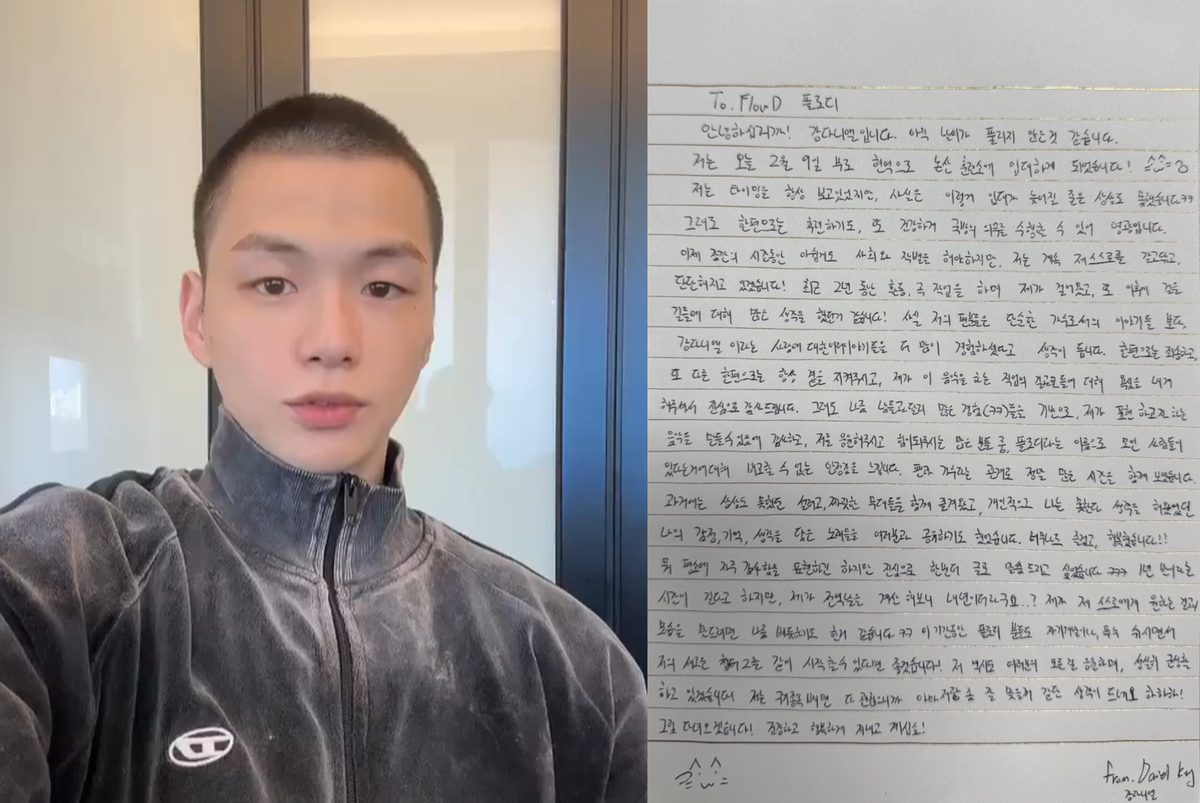 To. FlowD 플로디
안녕하십니까! 강다니엘입니다. 아직 날씨가 풀리지 않는것 같습니다.
저는 오늘 2월 9일 부로 현역으로 논산 훈련소에 입대하게 되었습니다!
저는 타이밍을 항상 보고있었지만, 사실은 이렇게 입대가 늦어질 줄은 상상도 못했습니다ㅋㅋ
그래도 한편으로는 후련하기도, 또 건강하게 국방의 의무를 수행할 수 있어 영광입니다.
이제 중간의 시간동안 아쉽게도 사회와 작별을 해야하지만, 저는 계속 저 스스로를 갈고닦고,
단단해지고 있겠습니다! 최근 2년 동안 활동, 곡 작업을 하며 제가 걸어왔고, 또 이후에 걸을
길들에 대해 많은 생각을 했던거 같습니다! 사실 저의 팬분들은 단순한 가수로서의 이야기들 보다,
강다니엘 이라는 사람에 대한 이야기들을 더 많이 경험하셨다고 생각이 듭니다. 한편으로는 죄송하고,
또 다른 한편으로는 항상 곁을 지켜주시고, 제가 이 음악을 하는 직업의 대해 목소리 내게
해주셔서 진심으로 감사드립니다. 그래도 나름 남들과 달리 많은 경험(ㅋㅋ)들을 기반으로, 제가 표현 하고자 하는
음악을 만들 수 있음에 감사하고, 저를 응원해주시고 함께해주시는 많은 분들 중, 플로디라는 이름으로 모인 사람들이
있다는거에 대해 비교할 수 없는 안정감을 느낍니다. 팬과 가수라는 관계로 정말 많은 시간을 함께 보냈습니다.
과거에는 상상도 못했던 설레고, 짜릿한 무대들을 함께 즐겨왔고, 개인적으로 나는 못한다 생각을 해왔었던
나의 감정, 기억, 생각을 담은 노래들을 여러분과 공유하기도 했었습니다. 너무나도 즐겁고, 행복했습니다!!
뭐 평소에 자주 감사함을 표현하긴 하지만 진심으로 한번더 글로 말씀 드리고 싶었습니다 ㅋㅋㅋ 1년 반이라는
시간이 길다고 하지만, 제가 전역날을 계산 해보니 내년이더라구요..? 제가 저 스스로에게 원하는 결과
모습을 만드려면 나름 빠듯하기도 한거 같습니다 ㅋㅋ 이 기간동안 플로디 분들도 자기개발이나, 푹 쉬시면서
저의 새로운 챕터 2를 같이 시작할 수 있다면 좋겠습니다! 저 역시도 여러분의 모든걸 응원하며, 열심히 군생활
하고 있겠습니다 저는 하하하!
그럼 다녀오겠습니다! 건강하고 행복하게 지내고 계십쇼!
from. Daniel K
강다니엘